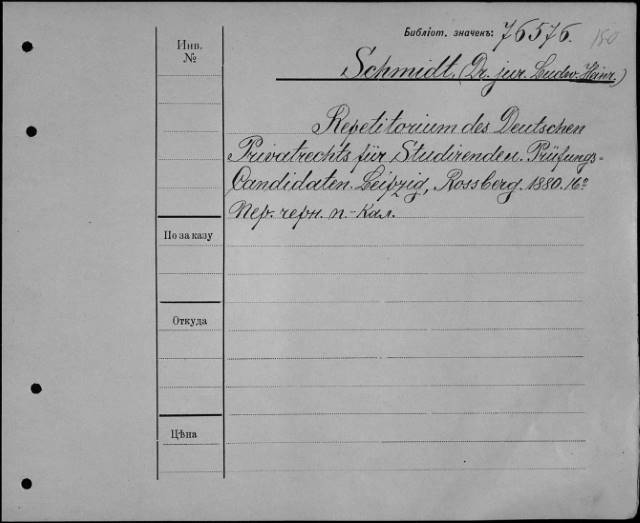 Библіот. значекъ: 76576. 150
Инв.
№
Schmidt, (Dr. jur. Ludw. Heinr.)
Repetitorium des Deutschen
Privatrechts für Studirende u. Prüfungs-
Candidaten. Leipzig, Rossberg. 1880. 16º
Пер. черн. п.-кал.
По заказу
Откуда
Цѣна